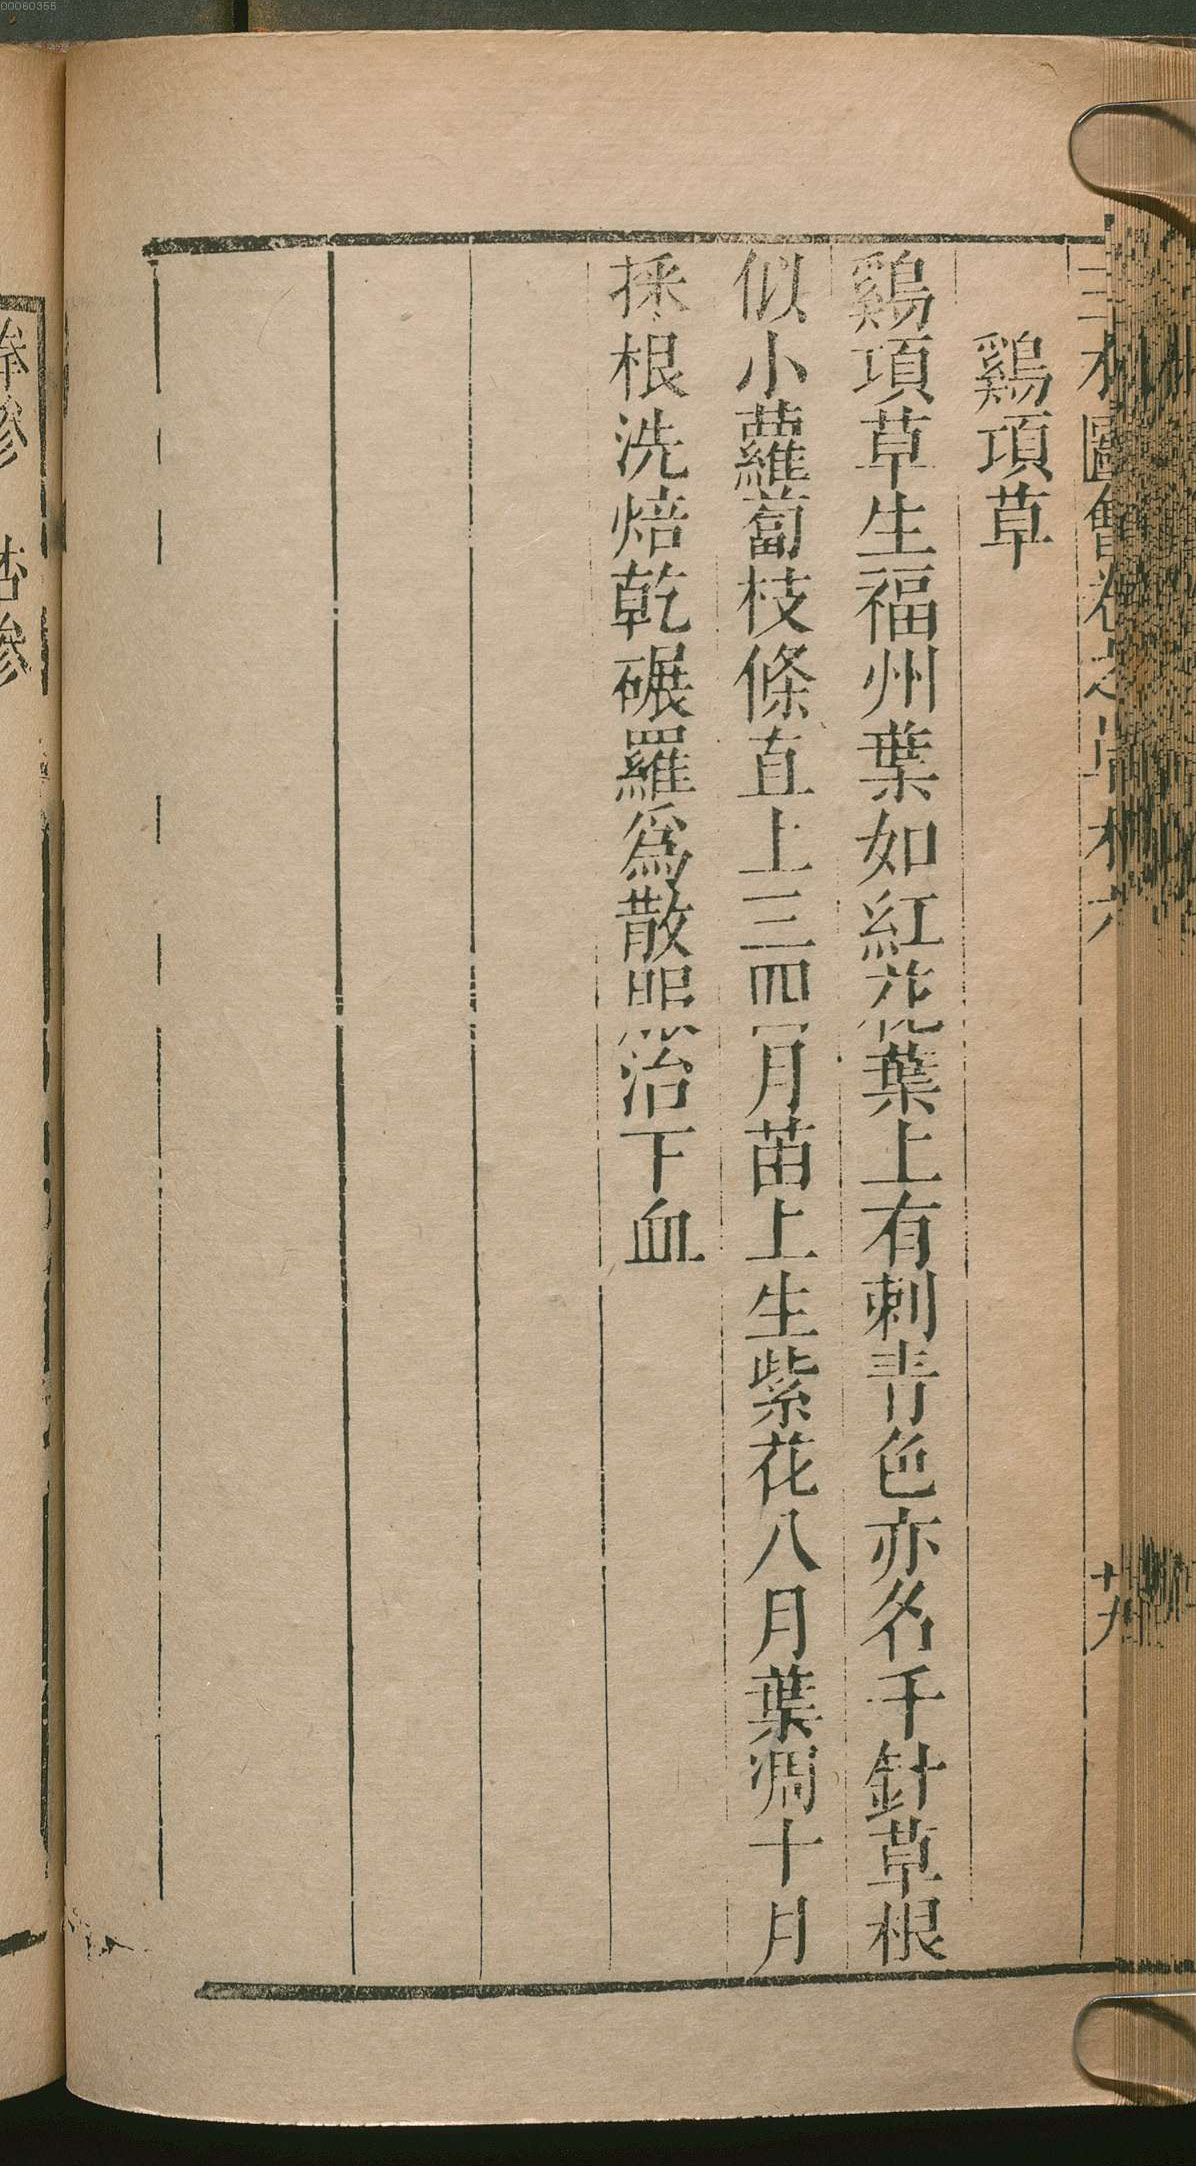 00060355
三才圖會卷之草木六
廿九
鷄項草
鷄項草生福州葉如紅花葉上有刺青色亦名千針草根
似小蘿蔔枝條直上三四月苗上生紫花八月葉凋十月
採根洗焙乾碾羅爲散服治下血